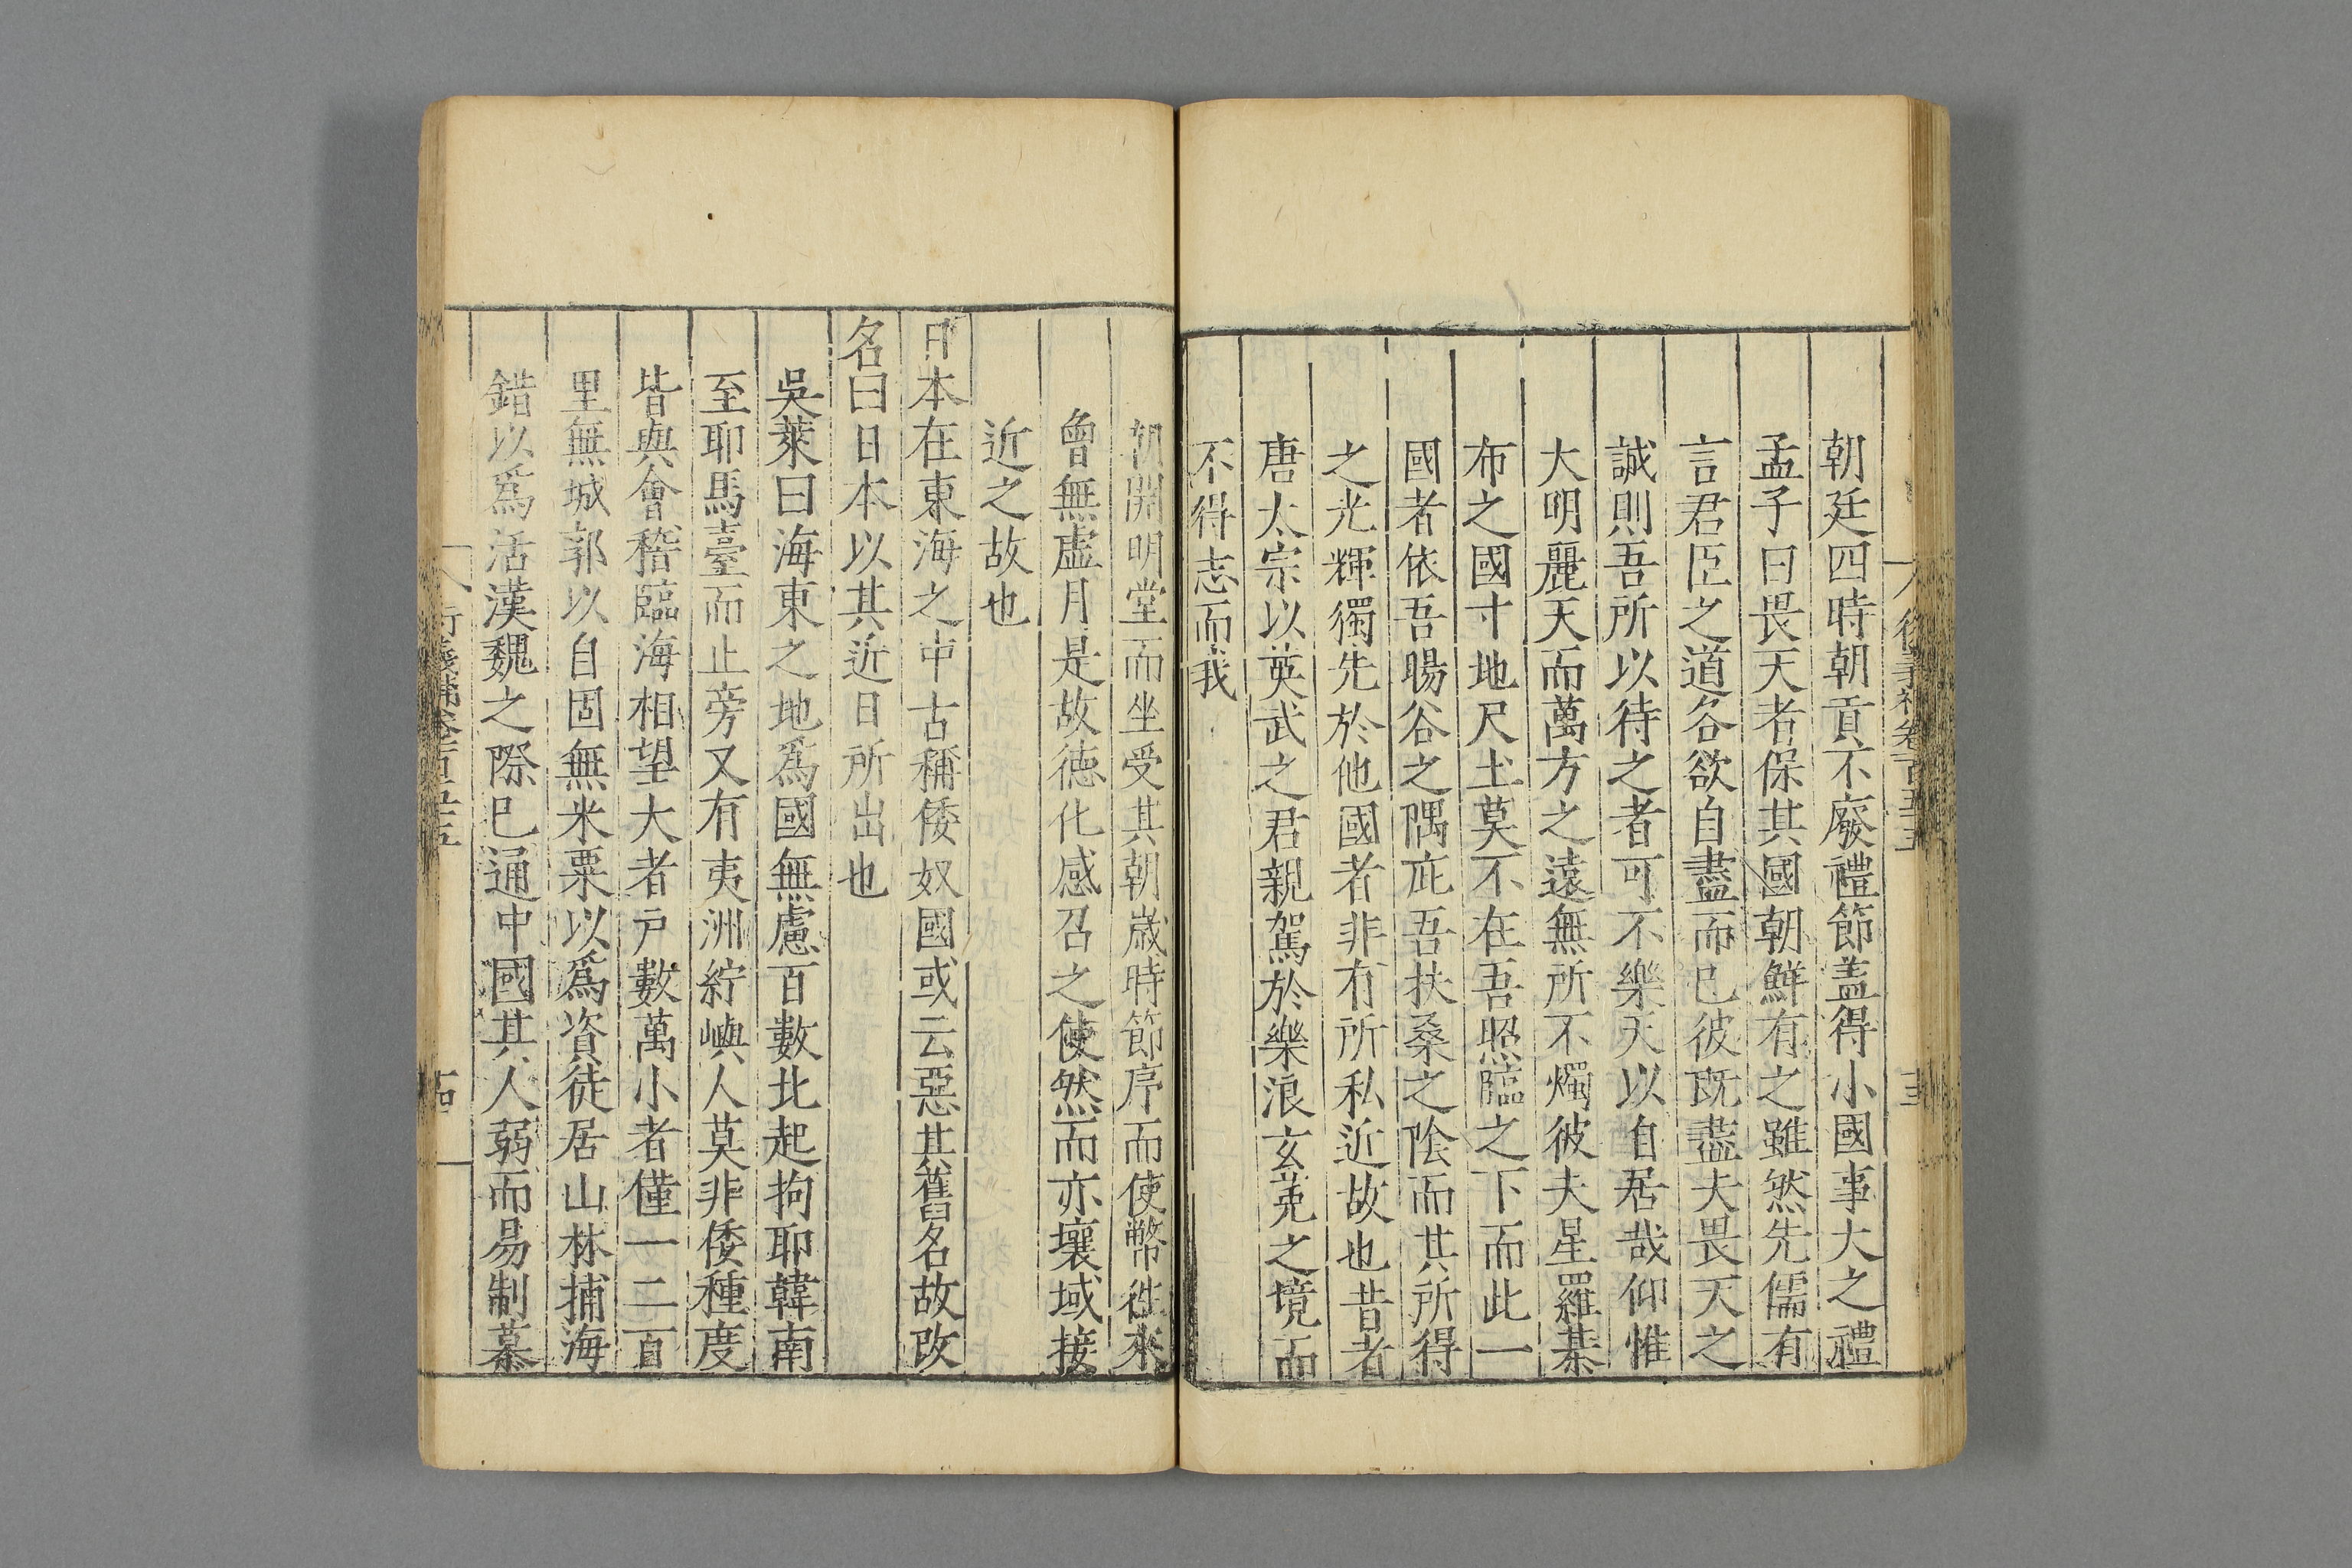 朝廷四時朝貢不廢禮節盖得小國事大之禮
孟子曰畏天者保其國朝鮮有之雖然先儒有
言君臣之道各欲自盡而已彼既盡夫畏天之
誠則吾所以待之者可不樂天以自居哉仰惟
大明麗天而萬方之遠無所不燭彼夫星羅棊
布之國寸地尺土莫不在吾照臨之下而此一
國者依吾暘谷之隅庇吾扶桑之陰而其所得
之光輝獨先於他國者非有所私近故也昔者
唐太宗以英武之君親駕於樂浪玄菟之境而
不得志而我
朝開明堂而坐受其朝歲時節序而使幣徃來
曾無虛月是故德化感召之使然而亦壤域接
近之故也
日本在東海之中古稱倭奴國或云惡其舊名故改
名曰日本以其近日所出也
吳萊曰海東之地爲國無慮百數北起拘耶韓南
至耶馬臺而止旁又有夷洲紵嶼人莫非倭種度
皆與會稽臨海相望大者戶數萬小者僅一二百
里無城郭以自固無米粟以爲資徒居山林捕海
錯以爲活漢魏之際已通中國其人弱而易制慕
衍義補卷一百五十五